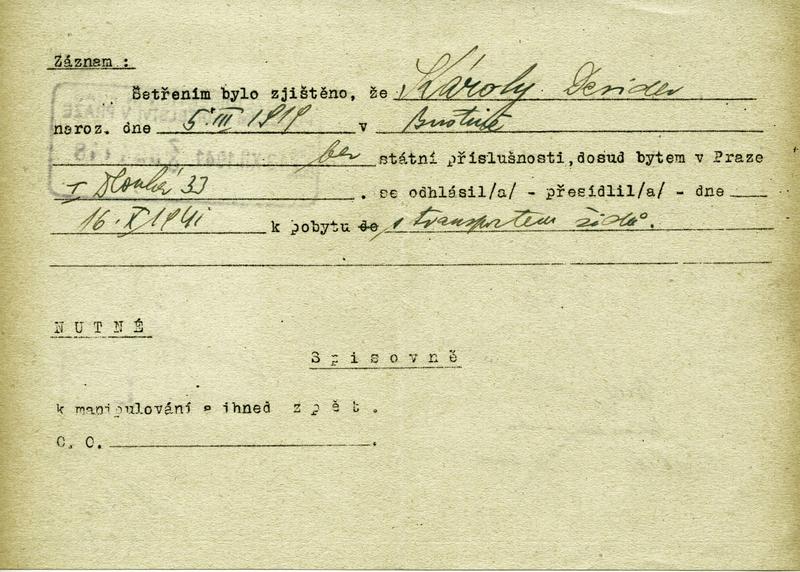 Záznam :
Šetřením bylo zjištěno, že Károly Desider
naroz. dne 5. III 1919 v Buštině
bez státní příslušnosti, dosud bytem v Praze
I Dlouhá 33 . se odhlásil/a/ - přesídlil/a/ - dne
16. X 1941 k pobytu do s transportem židů.
NUTNÉ
Spisovně
k manipulování a ihned zpět.
C. O. .